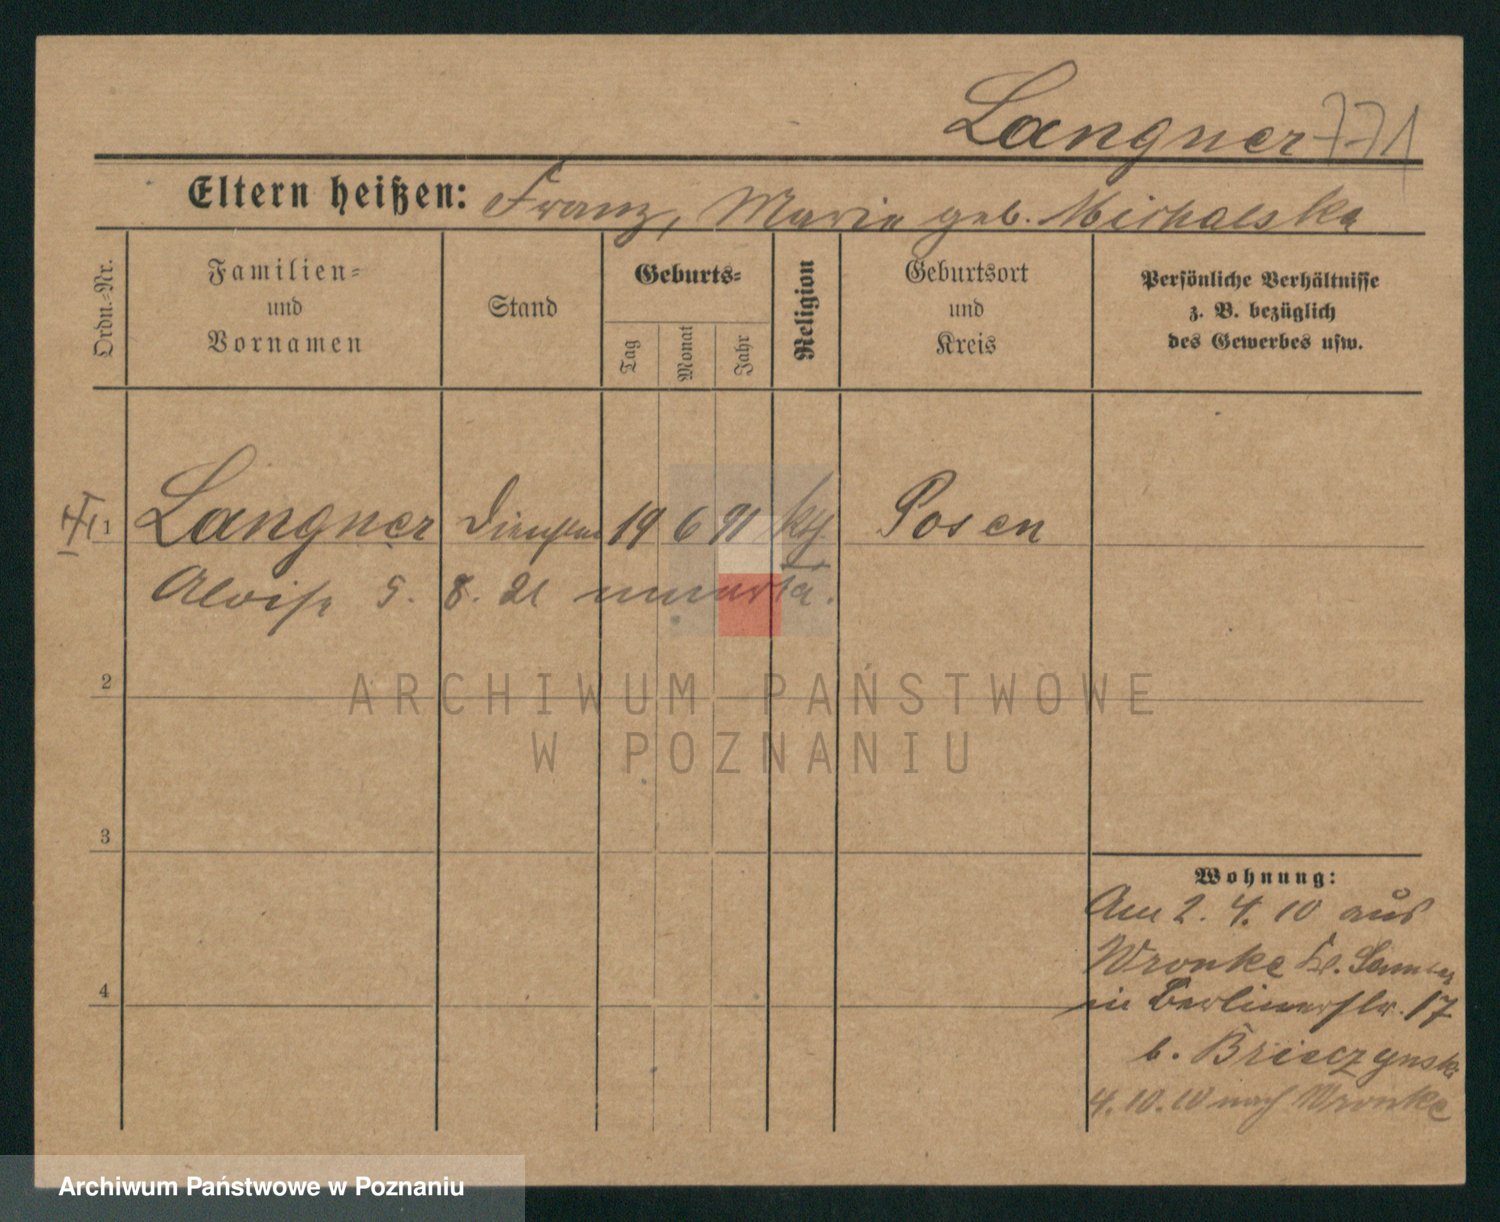 Langner 771
Eltern heißen: Franz, Marie geb. Michalska
Ordn.-Nr.
Familien-
und
Vornamen
Stand
Geburts-
Tag
Monat
Jahr
Religion
Geburtsort
und
Kreis
Persönliche Verhältnisse
z. B. bezüglich
des Gewerbes usw.
1 Langner 19 6 91 kth. Posen
5. 8. 21 umarła.
2
ARCHIWUM PAŃSTWOWE
W POZNANIU
3
Wohnung:
Am 2. 4. 10 aus
Wronke
in Berlinerstr. 17
4
b. Brieczynski
4. 10. 10 nach Wronke
Archiwum Państwowe w Poznaniu